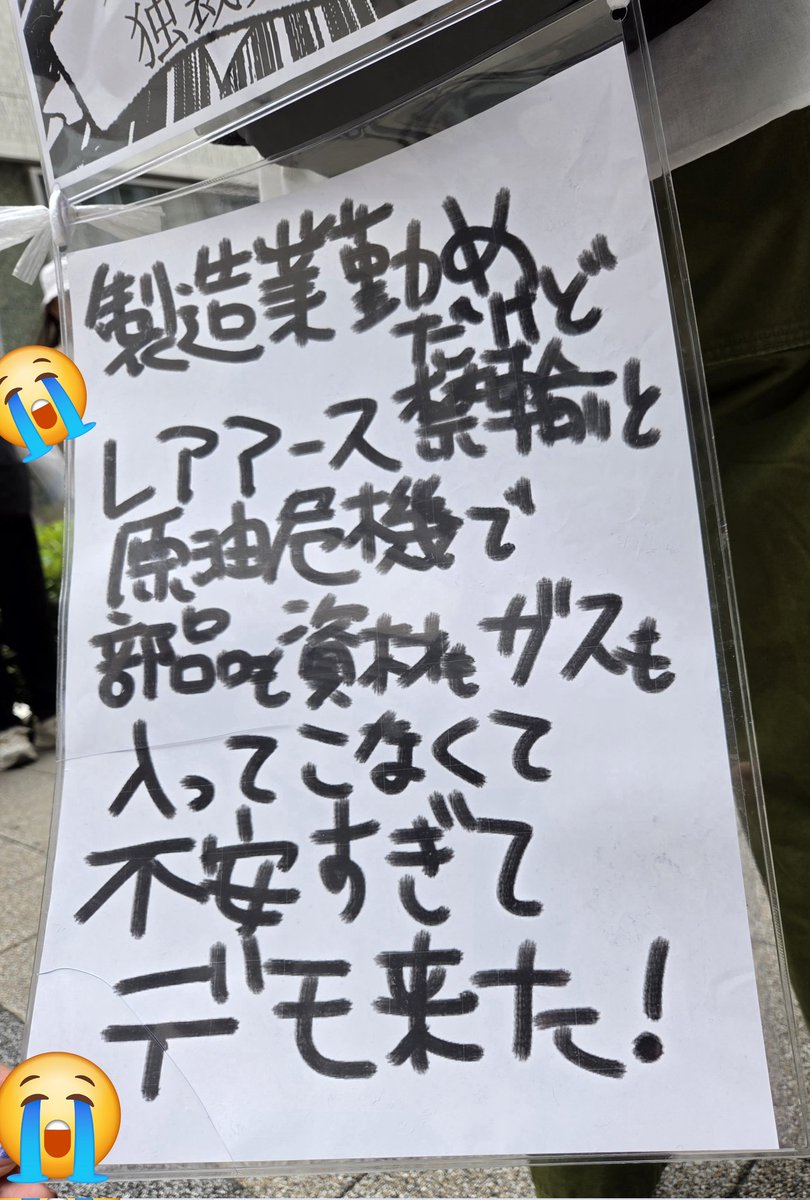 独裁
製造業勤め
だけど
レアアース禁輸と
原油危機で
部品も資材もガスも
入ってこなくて
不安すぎて
デモ来た!